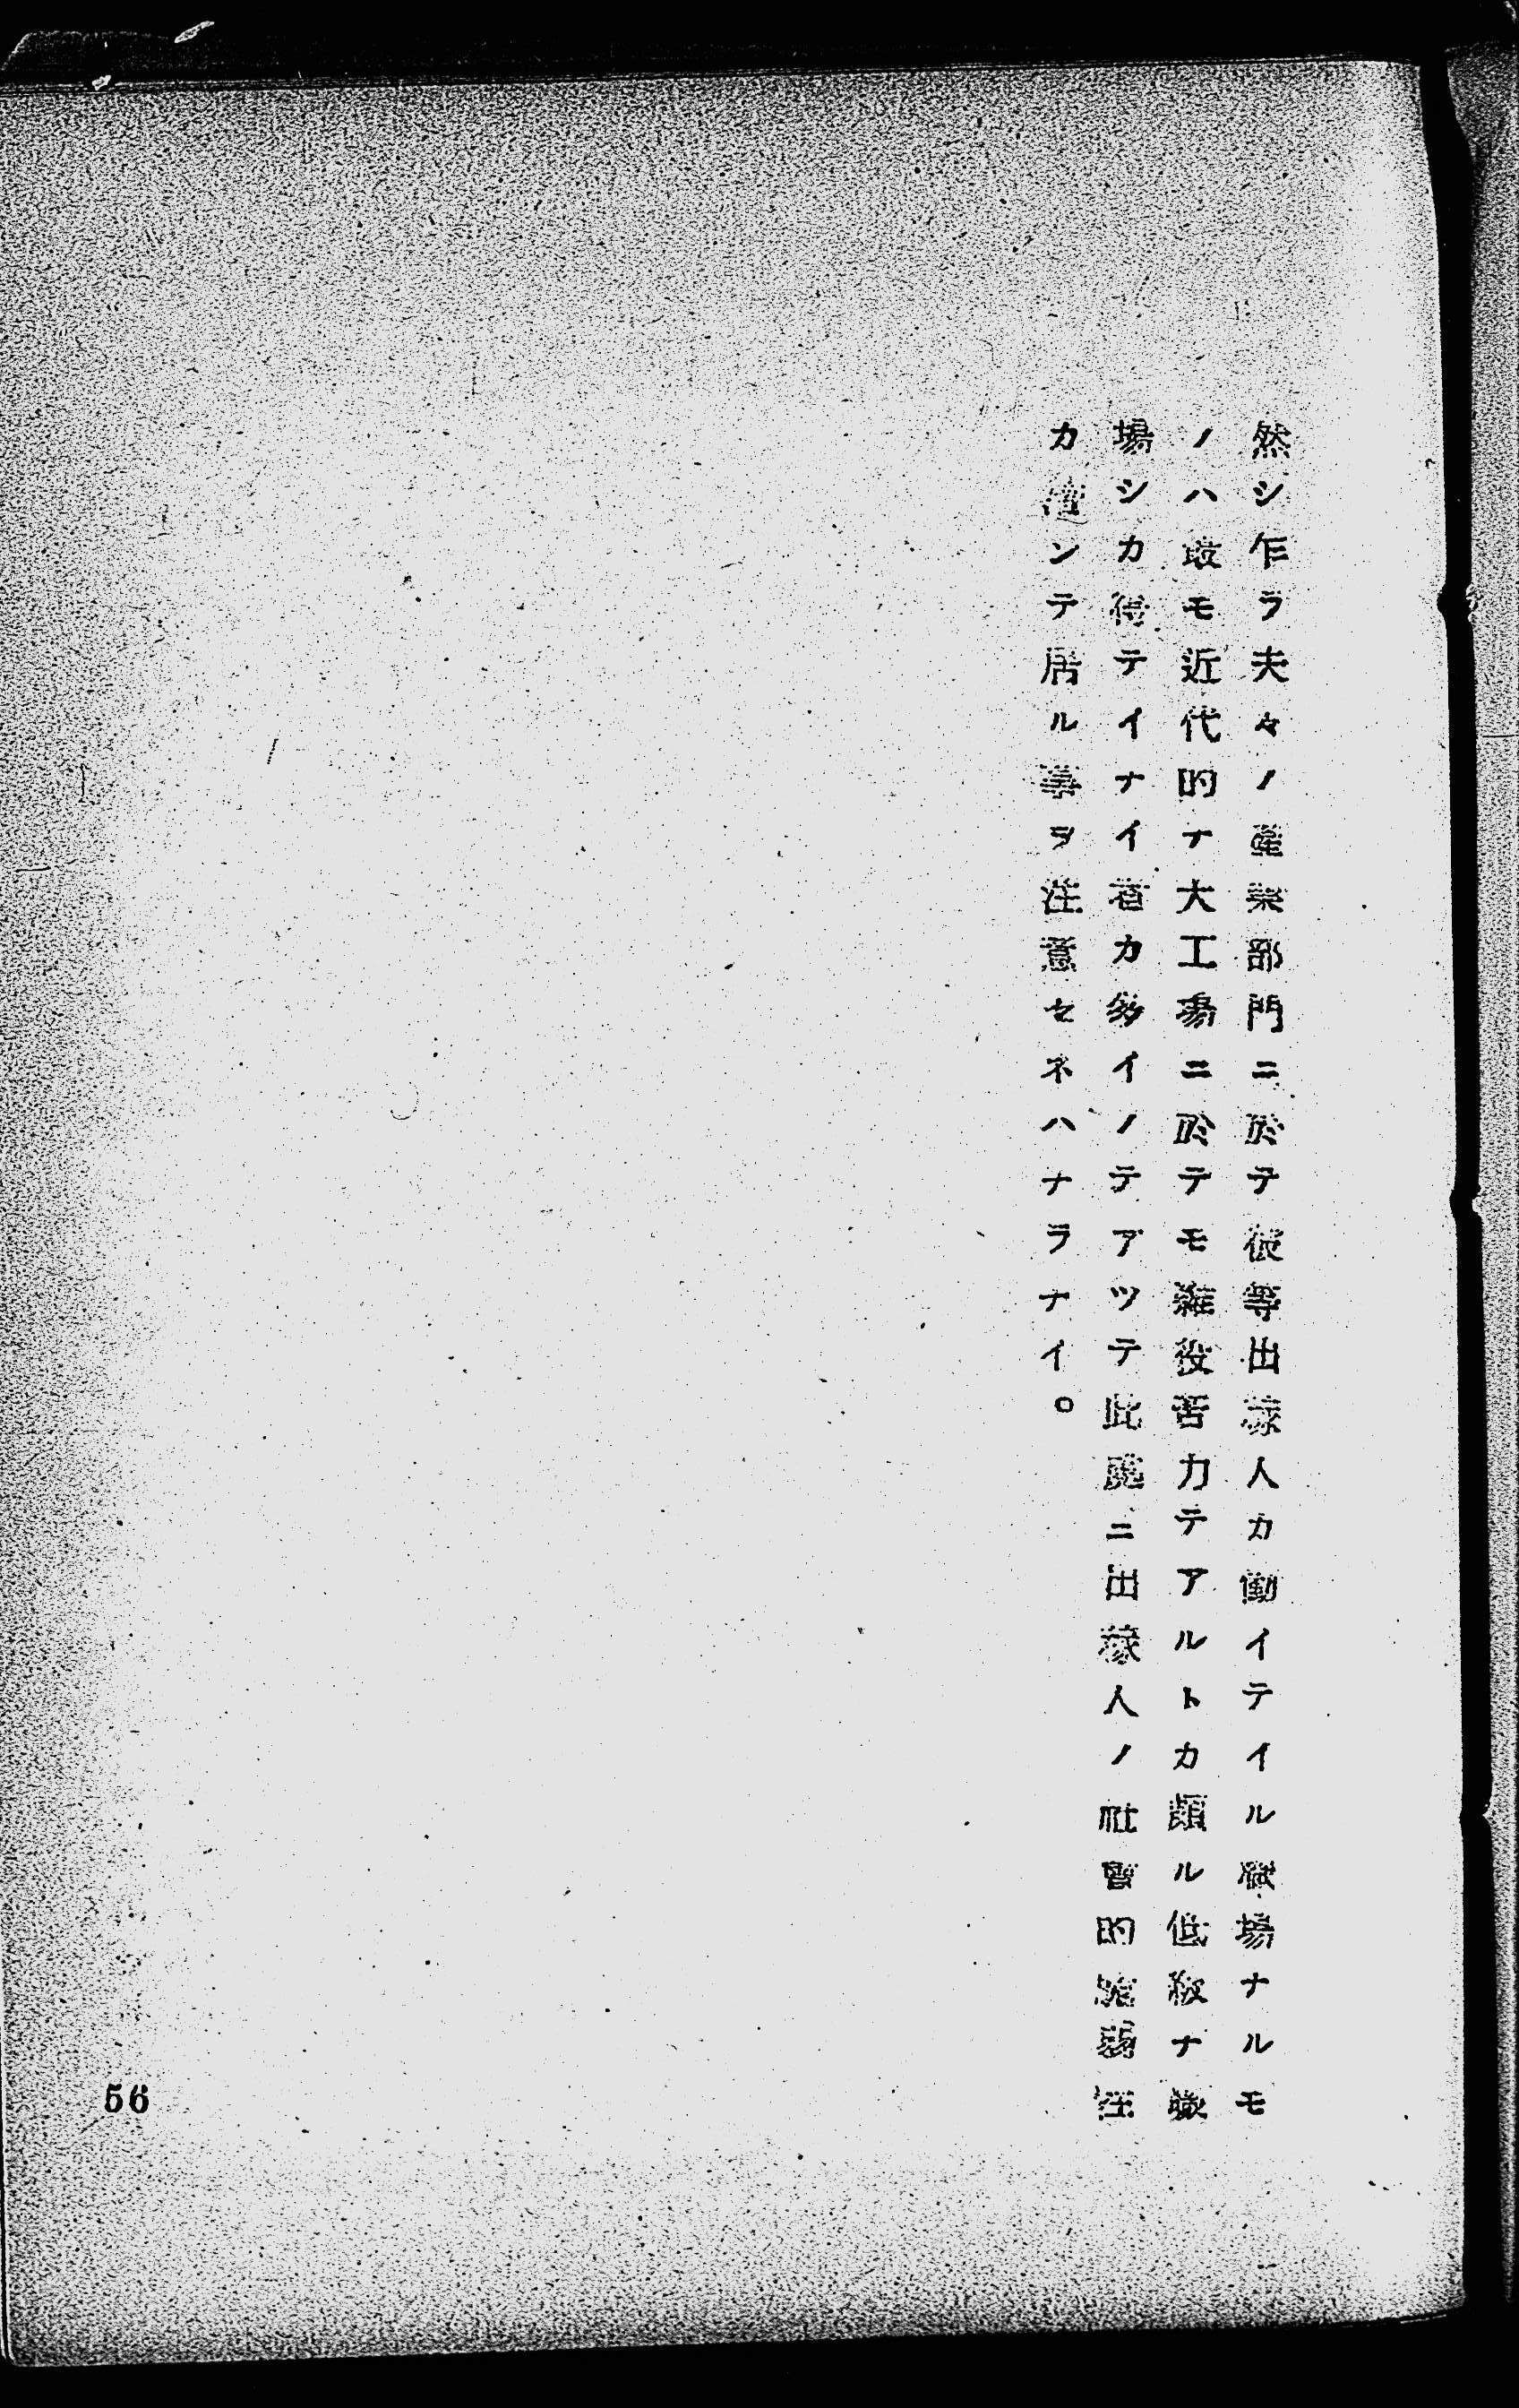 然シ乍ラ夫々ノ産業部門ニ於テ彼等出稼人カ働イテイル職場ナルモ
ノハ最モ近代的ナ大工場ニ於テモ雑役苦力テアルトカ頗ル低級ナ職
場シカ得テイナイ者カ多イノテアツテ此處ニ出稼人ノ社會的脆弱性
カ潜ンテ居ル事ヲ注意セネハナラナイ。
56